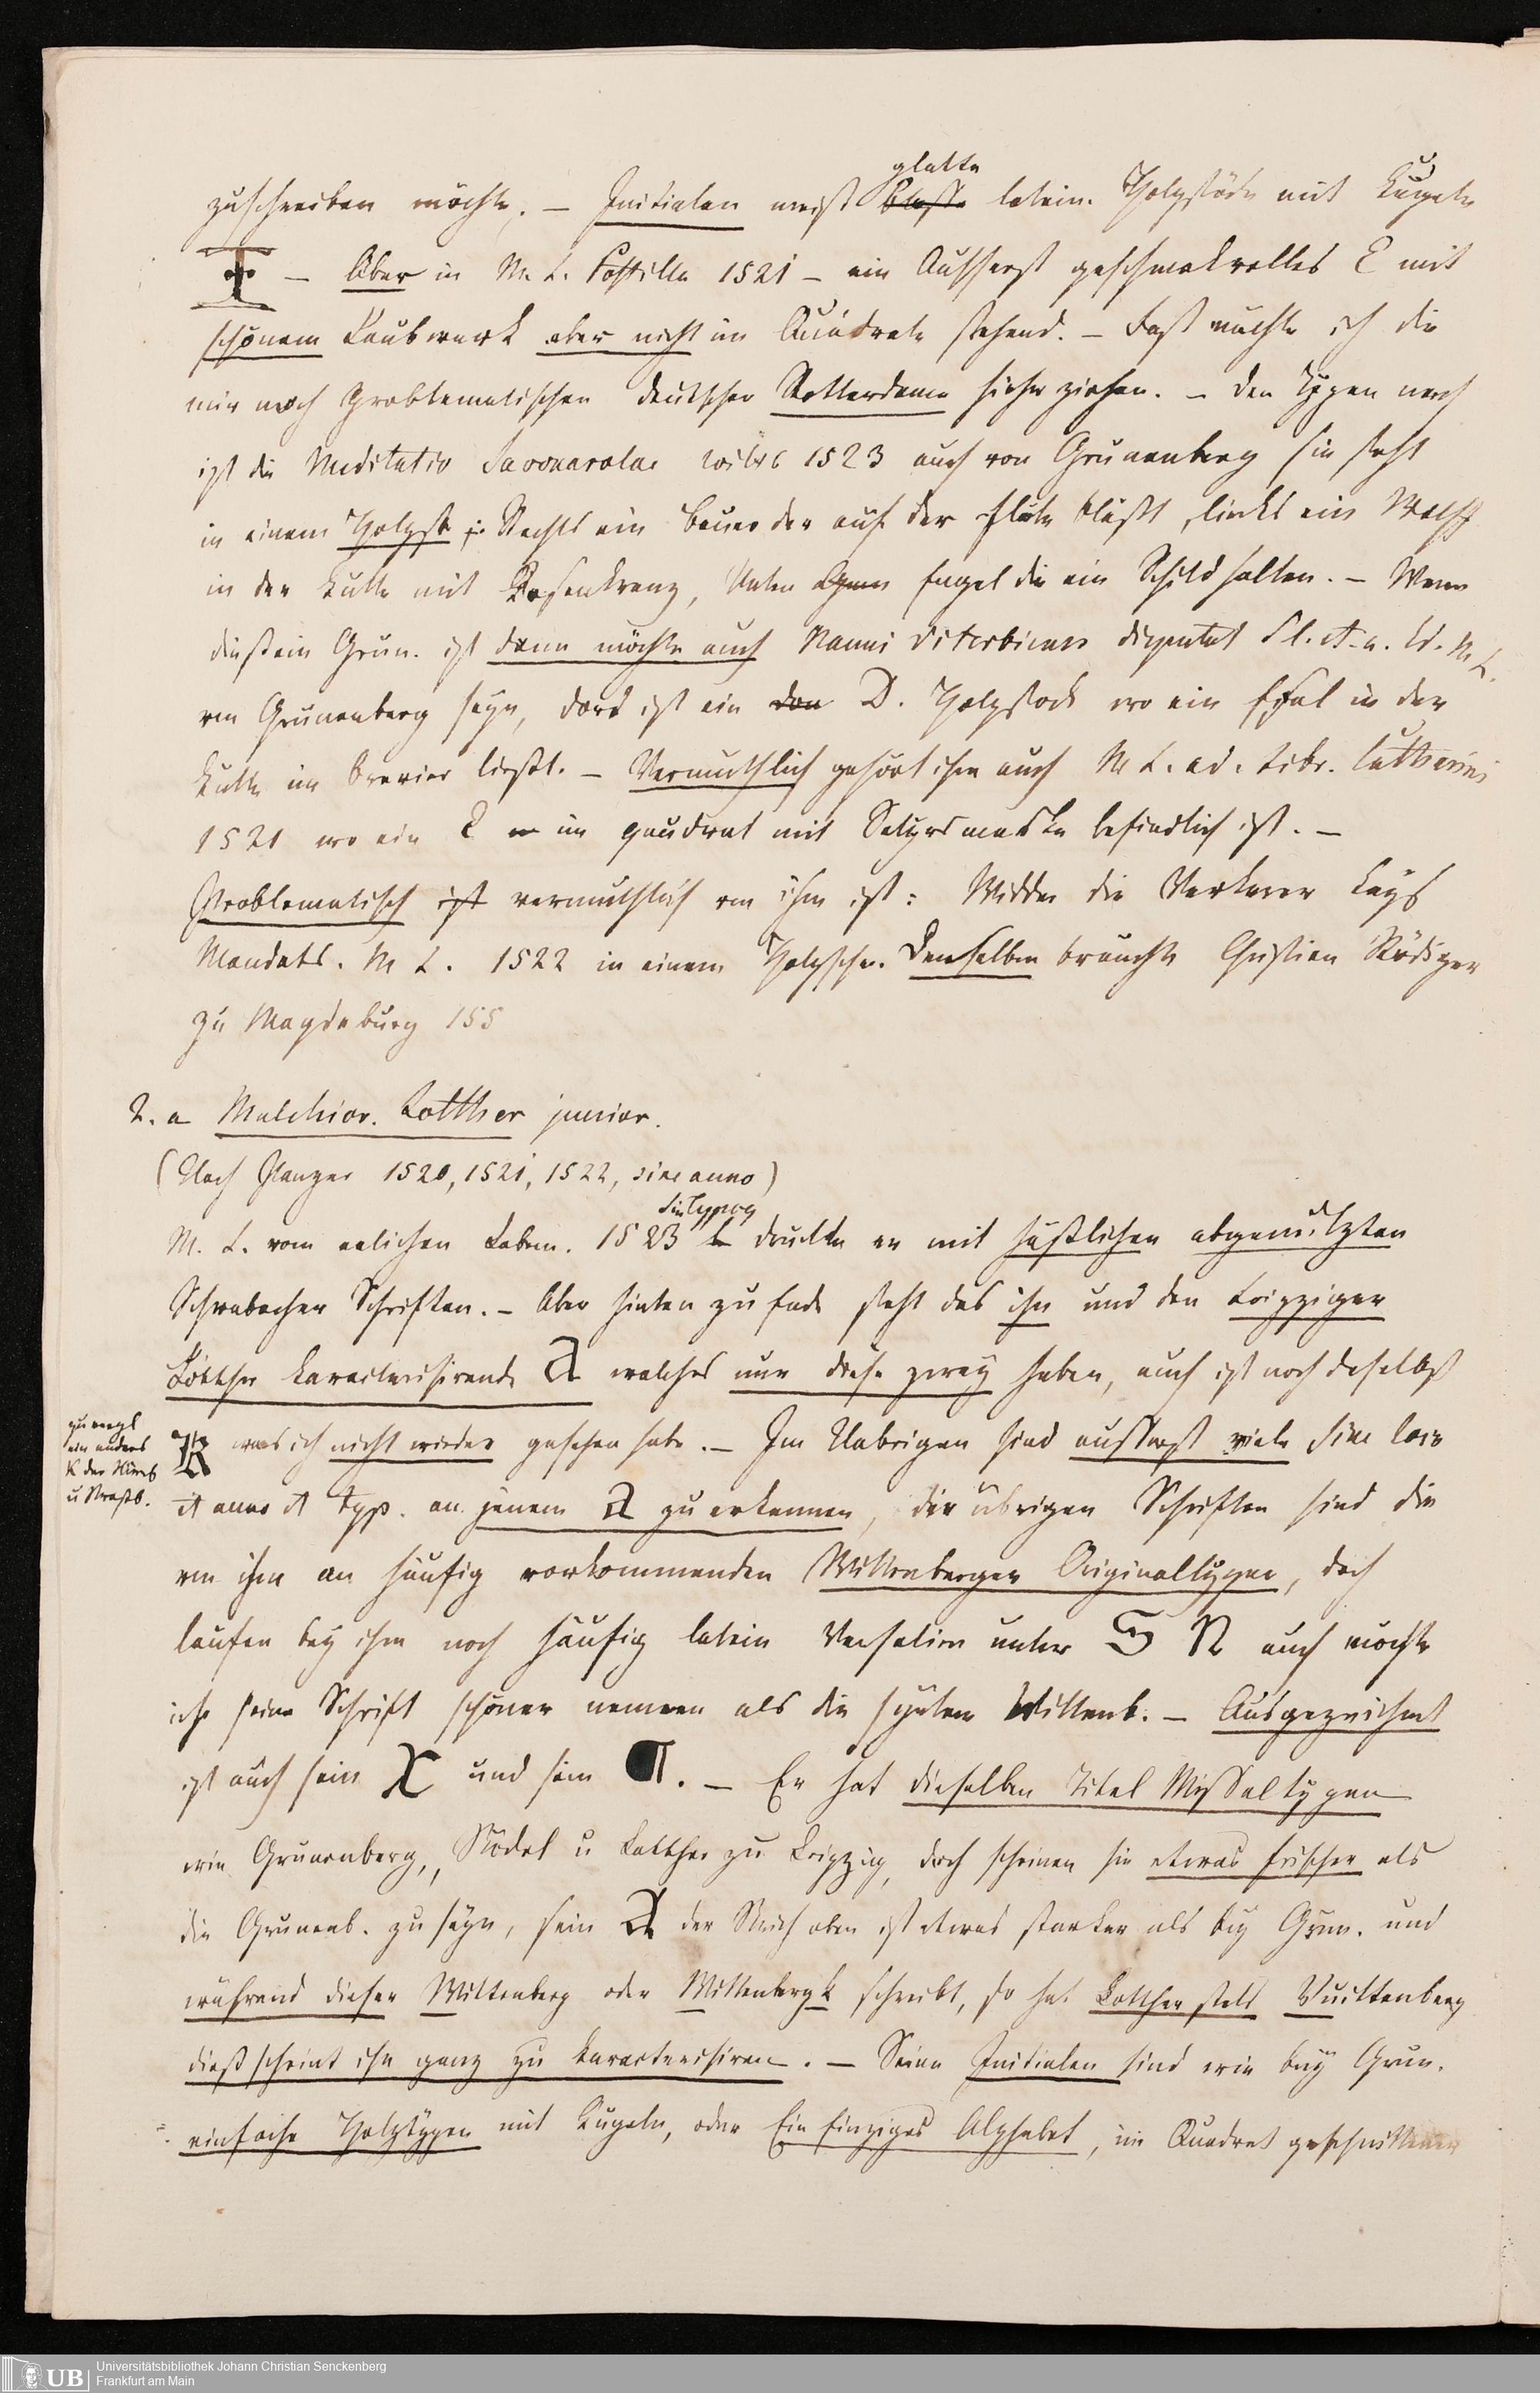 glatte
zuschreiben möchte. – Initialen meist bloße latein. Holzstöcke mit Kugeln
T – Aber in M. L. Postilla 1521 – ein Äusserst geschmakvolles E mit
schönem Laubwerk aber nicht im Quadrate stehend. – Fast möchte ich die
mir noch problematischen deutschen Rotterdame hieher ziehen. – Den Typen nach
ist die Meditatio Savonarolae 1523 auch von Grunenberg sie steht
in einem Holzst. Rechts ein Bauer der auf der Flöte bläßt, links ein Wolff
in der Kutte mit Rosenkranz, Unten Engel die ein Schild halten. – Wenn
dieß ein Grun. ist dann möchte auch Nanni Viterbiens disputat S l. et a. Ed. M L.
von Grunenberg seyn, dort ist ein den D. Holzstock wo ein Esel in der
Kutte im Brevier ließt. – Vermuthlich gehört ihm auch M L. ad. Libr. Catharini
1521 wo ein E im quadrat mit Satyrsmaske befindlich ist. –
Problematisch ist vermuthlich von ihm ist: Widder die Verkerer Kays
Mandats. M L. 1522 in einem Holzschn. Denselben brauchte Christian Rödiger
zu Magdeburg 155
2. a Melchior. Lotther junior.
(Nach Panzer 1520, 1521, 1522, sine anno)
Sin Typog
M. L. vom eelichen Leben. 1523 druckte er mit häßlichen abgenutzten
Schwabacher Schriften. – Aber hinten zu Ende steht das ihn und den Leipziger
Lotther karacterisirende A welches nur diese zwey haben, auch ist noch daselbst
zu vergl
ein anders
K der Nürnb
u Straßb.
K was ich nicht wieder gesehen habe. – Im Uebrigen sind ausserst viele Sine loco
et anno et typ. an jenem A zu erkennen, die übrigen Schriften sind die
von ihm an häufig vorkommenden Wittenberger Originaltypen, doch
laufen bey ihm noch häufig latein Versalien unter S N auch möchte
ich seine Schrift schöner nennen als die spätere Wittenb. – Ausgezeichnet
ist auch sein X und sein ¶. – Er hat dieselben Titel Missaltypen
wie Grunenberg, Stödel u Lotther zu Leipzig, doch scheinen sie etwas frischer als
die Grunenb. zu seyn, sein A der Strich oben ist etwas starker als bey Grun. und
während dieser Wittenberg oder Wittenbergk schreibt, so hat Lotther stets Vuittenberg
dieß scheint ihn ganz zu karacterisiren. – Seine Initialen sind wie bey Grun.
einfache Holztypen mit Kugeln, oder Ein Einziges Alphabet, im Quadrat geschnittener
UB Universitätsbibliothek Johann Christian Senckenberg
Frankfurt am Main